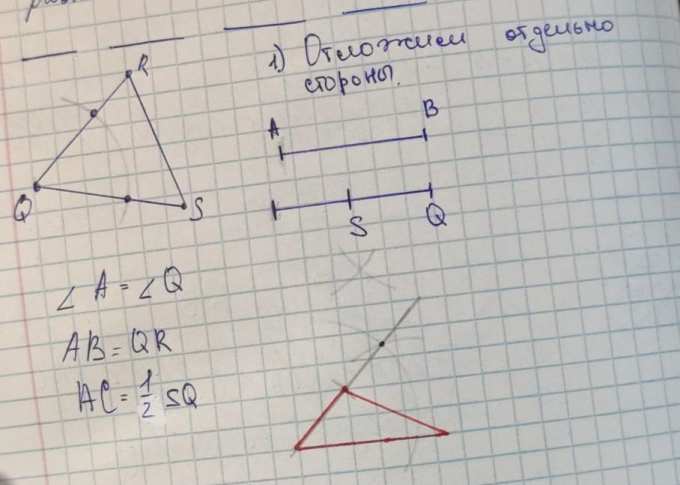 1) Отложим отдельно
стороны.
R
Q
S
A
B
S
Q
∠ A = ∠ Q
AB = QR
AC = 1/2 SQ